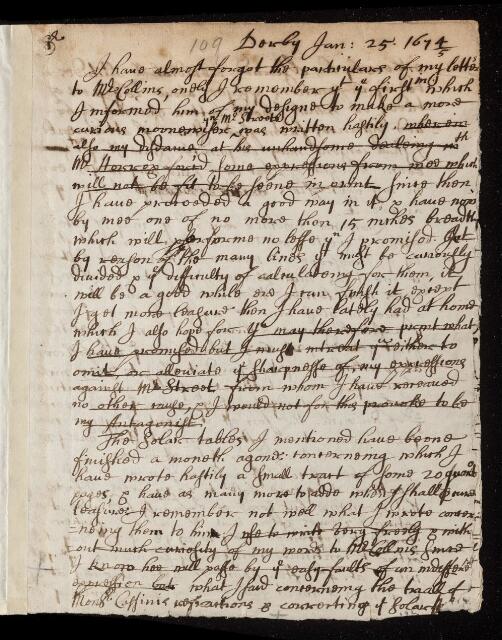 109 Derby Jan: 25. 1674/5
I have almost forgot the particulars of my letter
to Mr Collins onely I remember yt ye first in which
I informed him of my designe to make a more
in Mr Streets
curious moonewiser was written hastily wherein
also my disdaine at his unhandsome dealeing wth
Mr Horrox forc'd some expressions from mee which
will not be fit to be seene in print since then
I have proceeded a good way in it & have now
by mee one of no more then 15 inches breadth
which will performe no lesse yn I promised. Yet
by reason of the many lines yt must be curiously
divided & ye difficulty of calculateing for them, it
will be a good while ere I can finish it except
I get more leasure then I have lately had at home
which I also hope for. yu may therefore print what
I have promised but I must intreat you either to
omit or alleviate ye sharpnesse of my expressions
against Mr Street from whom I have received
no other cause, & I would not for this provoke to be
my Antagonist.
The Solar tables I mentioned have beene
finished a moneth agone: concerneing which I
have wrote hastily a small tract of some 20 quarto
pages, & have as many more to adde when I shall
leasure. I remember not well what I wrote concer-
neing them to him, I use to write very freely & with
out much curiosity of my words to Mr Collins since
I know hee will passe by ye easy faults of an indifferent
expression but what I said concerneing the
Monsr Cassinis observations & correcting ye Solar